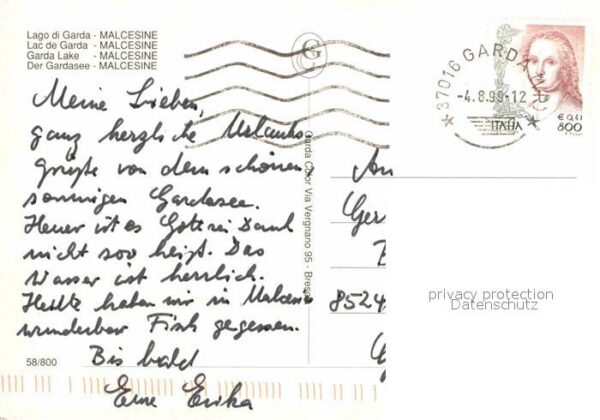 Lago di Garda - MALCESINE
Lac de Garda - MALCESINE
Garda Lake - MALCESINE
Der Gardasee - MALCESINE
Meine Lieben,
ganz herzliche Urlaubs
grüße von dem schönen,
sonnigen Gardasee.
Heuer ist es Gott sei Dank
nicht soo heiß. Das
Wasser ist herrlich.
Heute haben wir in Malcesine
wunderbar Fisch gegessen.
Bis bald
Eure Erika
58/800
G
Garda Color Via Vergnano 95 - Bresc
37016 GARDA
-4.8.99-12
ITALIA
€ 0,41
800
An
8524
privacy protection
Datenschutz